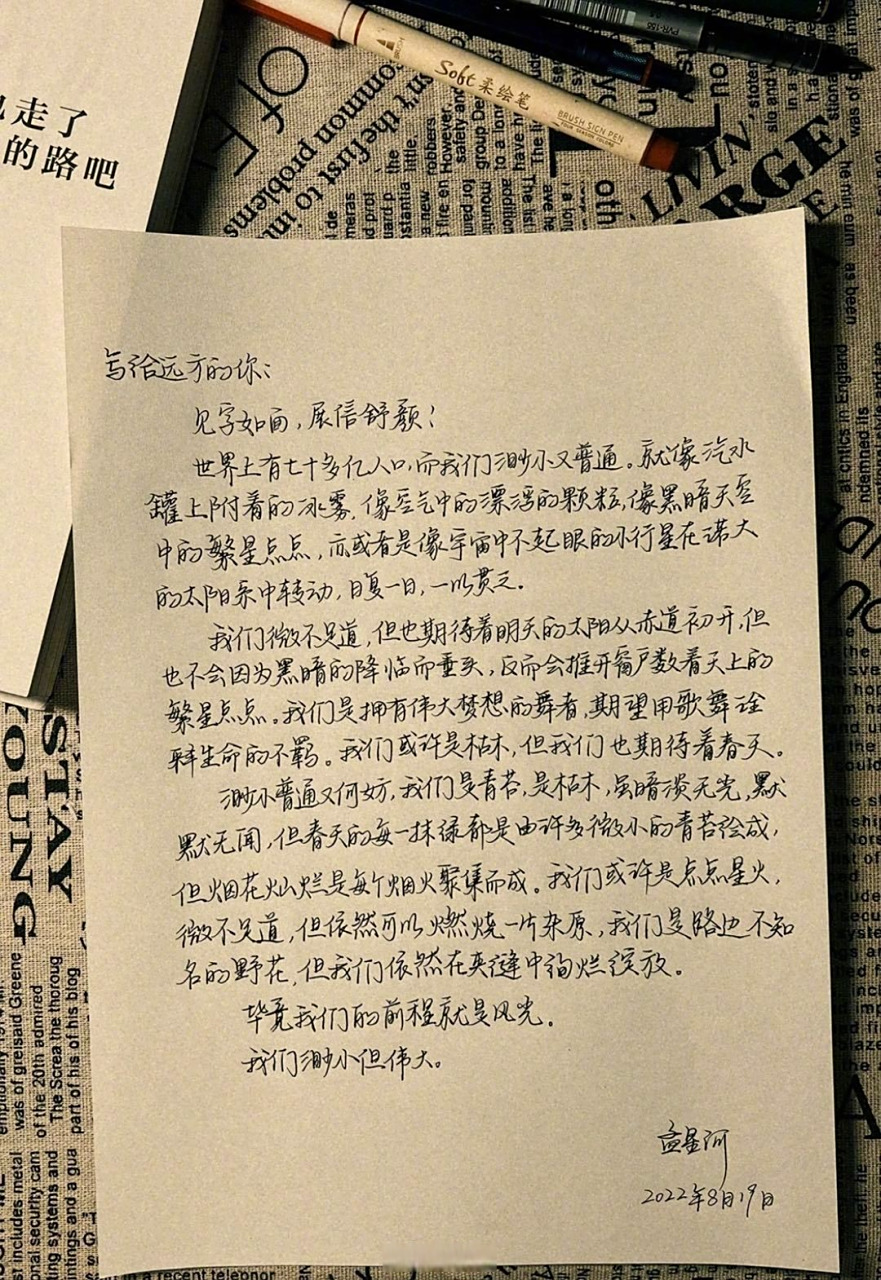 走了
的路吧
Soft 柔绘笔
BRUSH SIGN PEN
写给远方的你:
见字如面,展信舒颜!
世界上有七十多亿人口,而我们渺小又普通。就像汽水
罐上附着的冰雾,像空气中的漂浮的颗粒,像黑暗天空
中的繁星点点,亦或者是像宇宙中不起眼的小行星在诺大
的太阳系中转动,日复一日,一以贯之。
我们微不足道,但也期待着明天的太阳从赤道初开,但
也不会因为黑暗的降临而垂头,反而会推开窗户数着天上的
繁星点点。我们是拥有伟大梦想的舞者,期望用歌舞诠
释生命的不羁。我们或许是枯木,但我们也期待着春天。
渺小普通又何妨,我们是青苔,是枯木,虽暗淡无光,默
默无闻,但春天的每一抹绿都是由许多微小的青苔绘成,
但烟花灿烂是每个烟火聚集而成。我们或许是点点星火,
微不足道,但依然可以燃烧一片杂原,我们是路边不知
名的野花,但我们依然在夹缝中绚烂绽放。
毕竟我们的前程就是风光。
我们渺小但伟大。
孟星河
2022年8月19日
of
common problems
sn't the first to in
LIVIN'
STAY
YOUNG
was of greisaid Greene
of the 20th admired
The Screa the thoroug
part of his of his blog